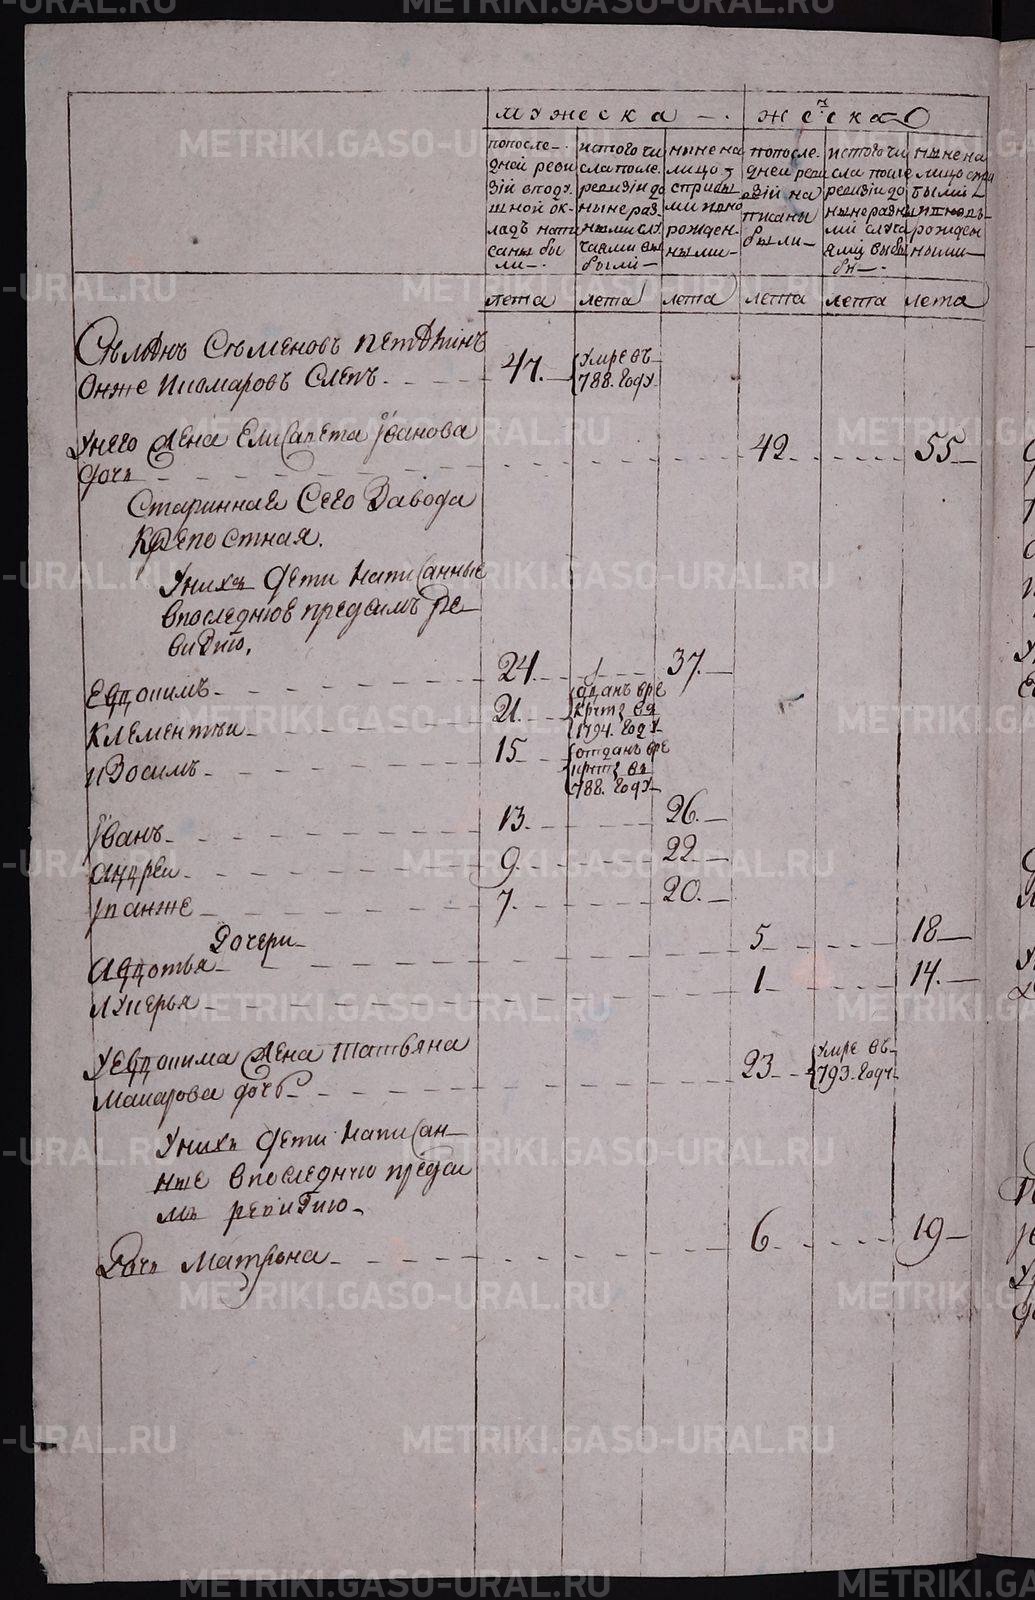 мужеска
женска
попосле-
дней реви
зiй вподу-
шной ок-
ладъ напи
саны бы
ли
истого чи
сла после
ревизiи до
ныне раз-
ными слу
чаями вы
были
ныне на
лицо
ми ино
рожден-
ными
попосле-
дней реви
зiй на
писаны
были
истого чи
сла после
ревизiи до
ныне разны
ми случа
ями выбы
ныне на
лицо
рожден
ными
лета
лета
лета
лета
лета
лета
Семенъ Семеновъ
онже Слепъ
47.
умре въ
788. году
Унего Жена Елисавета Iванова
дочь
42
55
Стариннаго Сего Завода
Крепостная.
Унихъ Дети написанные
впоследнюю предсимъ ре-
визию.
Евдокимъ
24
37.
Клементеи
21.
отданъ вре
круты въ
1794. году
Изосимъ
15
отданъ вре
круты въ
788. году
Iванъ
13.
26.
Андреи
9
22
Iванже
7.
20.
Дочери
Авдотья
5
18
Лукерья
1
14.
УЕвдокима Жена Татьяна
Макарова дочь
23
умре въ
793. году
Унихъ Дети написан-
ные впоследнюю предси
мъ ревизию
Дочь Матрена
6
19
METRIKI.GASO-URAL.RU